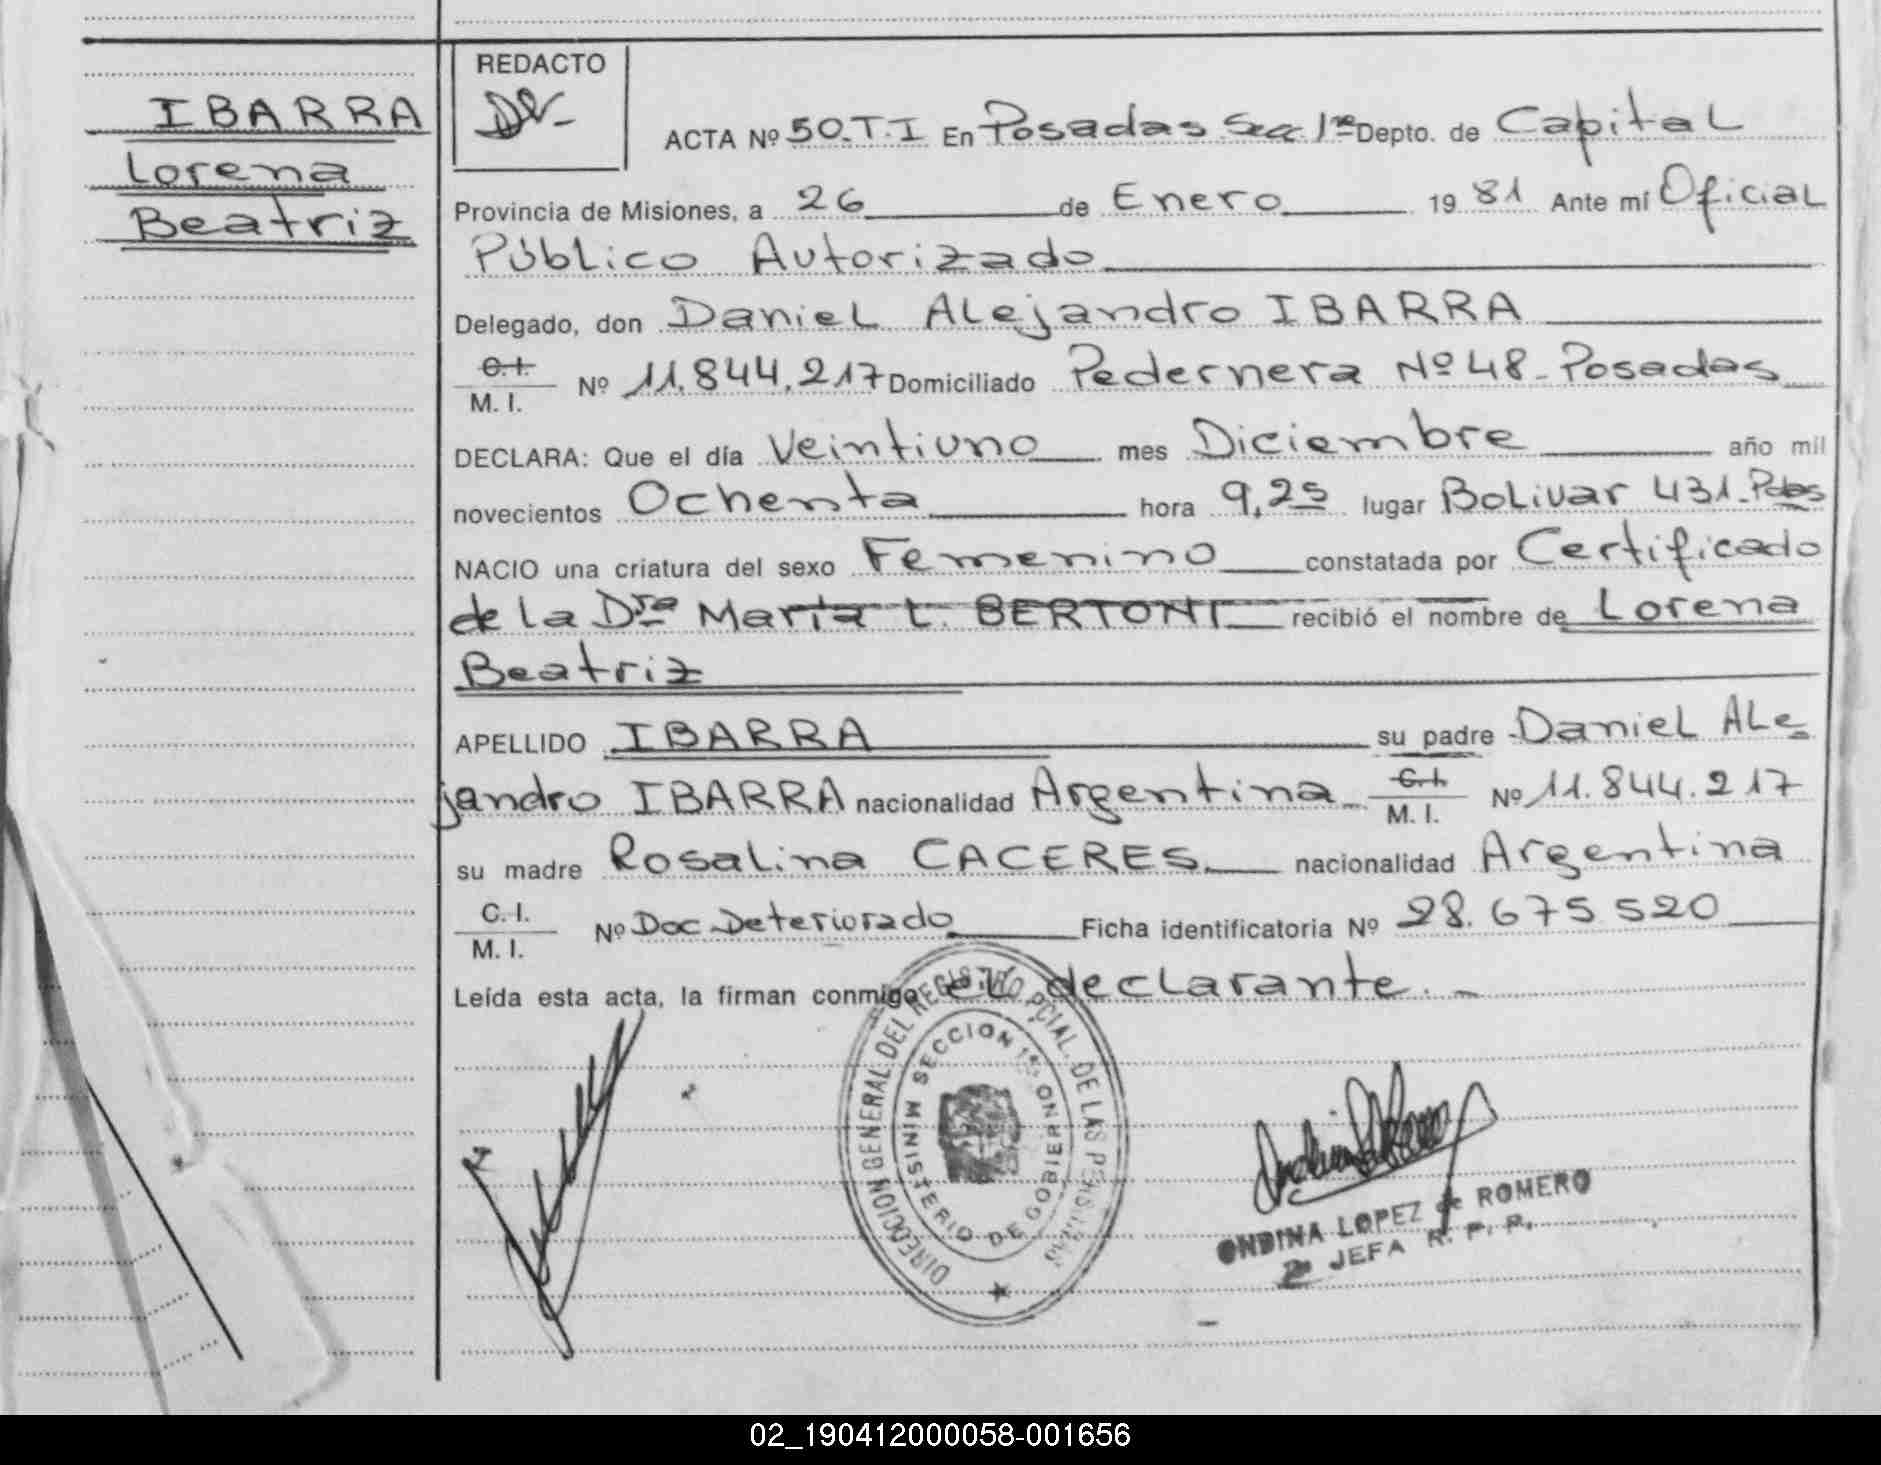 IBARRA
Lorena
Beatriz
REDACTO
ACTA Nº 50.T.I En Posadas Sec 1ra Depto. de Capital
Provincia de Misiones, a 26 de Enero 1981 Ante mí Oficial
Público Autorizado
Delegado, don Daniel Alejandro IBARRA
C.I.
M. I. Nº 11.844.217 Domiciliado Pedernera Nº 48 - Posadas
DECLARA: Que el día Veintiuno mes Diciembre año mil
novecientos Ochenta hora 9,25 lugar Bolivar 431 - Pdas
NACIO una criatura del sexo Femenino constatada por Certificado
de la Dra María L. BERTONI recibió el nombre de Lorena
Beatriz
APELLIDO IBARRA su padre Daniel Ale
jandro IBARRA nacionalidad Argentina C.I.
M. I. Nº 11.844.217
su madre Rosalina CACERES. nacionalidad Argentina
C.I.
M. I. Nº Doc. Deteriorado Ficha identificatoria Nº 28.675.520
Leída esta acta, la firman conmigo el declarante. -
DIRECCION GENERAL DEL REGISTRO PCIAL. DE LAS PERSONAS
SECCION 1ra.
MINISTERIO DE GOBIERNO
ONDINA LOPEZ de ROMERO
JEFA R. P. P.
02_190412000058-001656